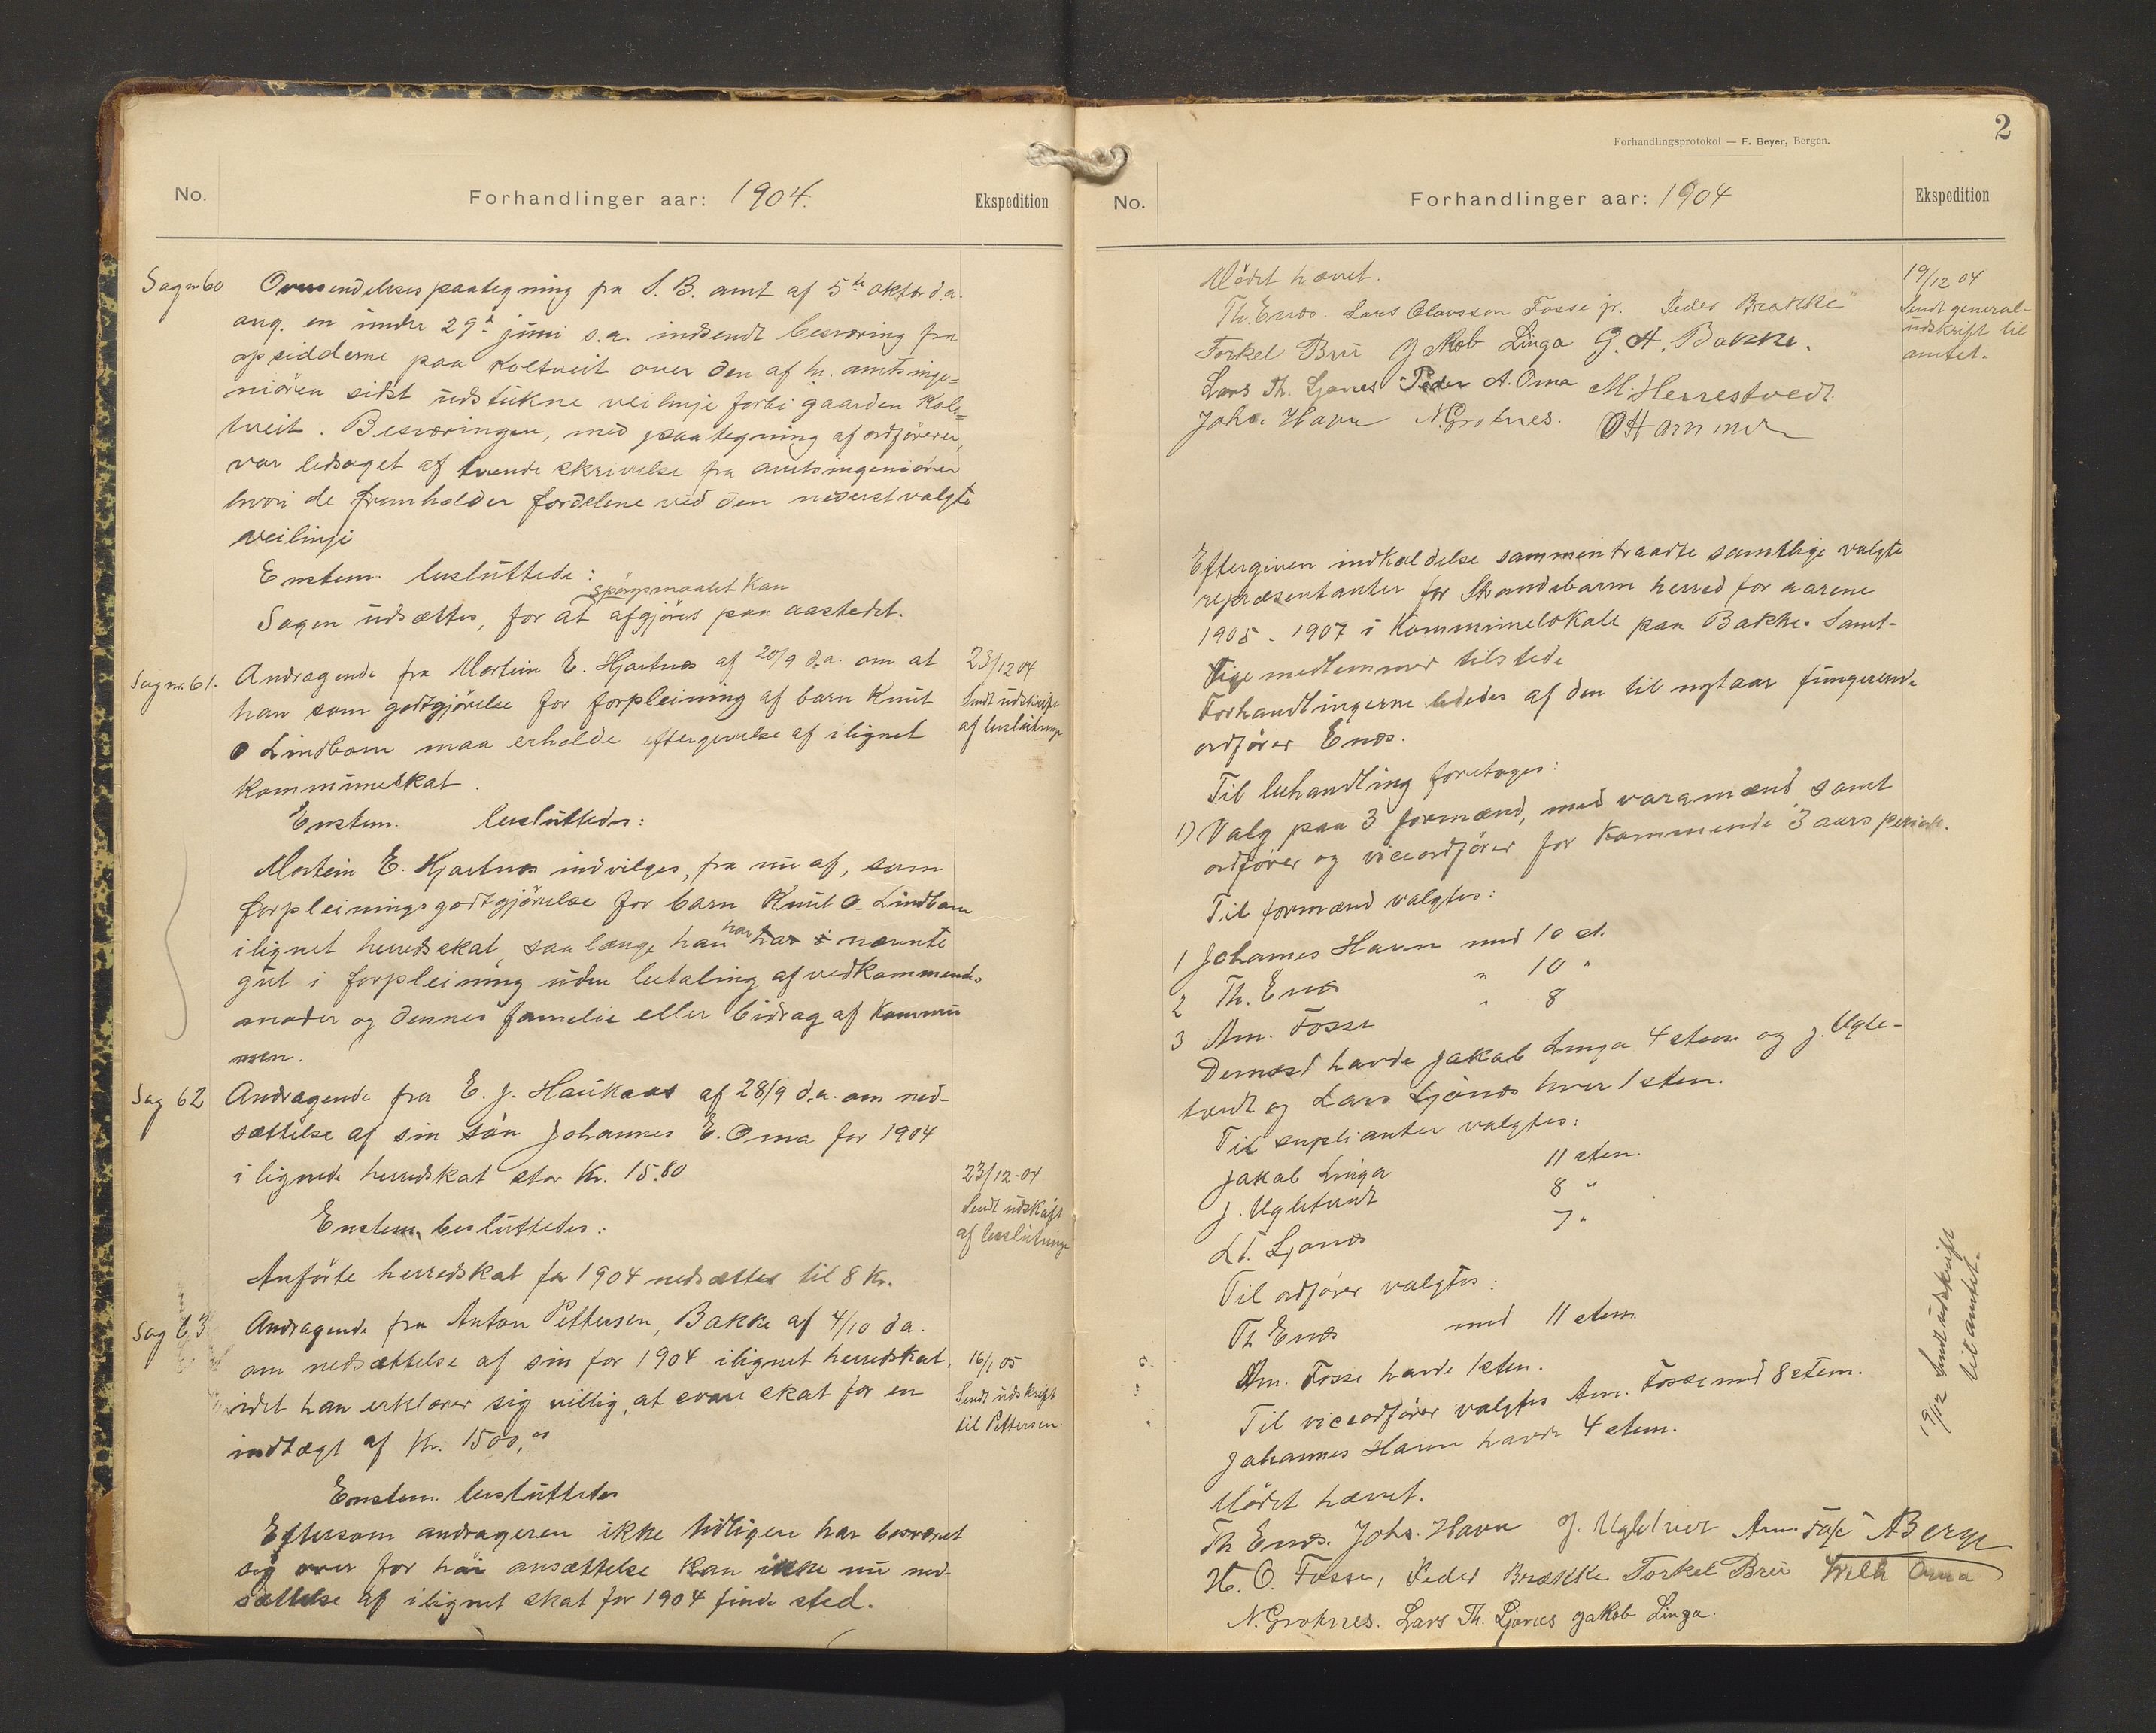 No.
Forhandlinger aar: 1904.
Ekspedition
Sag nr 60
Oversendelsespaategning fra S. B. amt af 5te oktbr d.a.
ang. en under 29de juni s.a. indsendt besværing fra
opsidderne paa Koltveit over den af hr. amtsinge=
niören sidst udstukne veilinje forbi gaarden Kol=
tveit. Besværingen, med paategning af ordföreren,
var ledsaget af tvende skrivelse fra amtsingeniören
hvori de fremholder fordelene ved den nederst valgte
veilinje
Enstem. besluttede:
Sagen udsættes, for at spörgsmaalet kan afgjöres paa aastedet.
Sag nr. 61.
Andragende fra Mortein E. Hjartnes af 20/9 d.a. om at
han som godtgjörelse for forpleining af barn Knut
O Lindbom maa erholde eftergivelse af ilignet
kommuneskat.
23/12 04
Sendt udskrift
af beslutning
Enstem. besluttedes:
Mortein E. Hjartnes indvilges, fra nu af, som
forpleiningsgodtgjörelse for barn Knut O. Lindbom
ilignet herredskat, saa længe han har nævnte
gut i forpleining uden betaling af vedkommendes
moder og dennes familie eller bidrag af Kommu
nen.
Sag 62
Andragende fra E. J. Haukaas af 28/9 d.a. om ned-
sættelse af sin sön Johannes E. Oma for 1904
ilignede herredskat stor Kr. 15.80
23/12-04
Sendt udskrift
af beslutning
Enstem. besluttedes:
Anförte herredskat for 1904 nedsættes til 8 Kr.
Sag 63
Andragende fra Anton Pettersen, Bakke af 4/10 d a.
om nedsættelse af sin for 1904 ilignet herredskat,
idet han erklærer sig villig, at svare skat for en
indtægt af Kr. 1500,00
16/1 05
Sendt udskrift
til Pettersen
Enstem. besluttedes
Eftersom andrageren ikke tidligere har besværet
sig over for höi ansættelse kan ikke nu ned-
sættelse af ilignet skat for 1904 finde sted.
2
Forhandlingsprotokol — F. Beyer, Bergen.
No.
Forhandlinger aar: 1904
Ekspedition
Mödet hævet.
Th. Enæs. Lars Olavsson Fosse jr. Peder Brække
Torkel Bru Jakob Linga G. A. Bakke.
Lars Th. Ljones Peder A. Oma M. Herrestvedt
Johs. Havn N. Grotnes. O Hammer
19/12 04
Sendt general-
udskrift til
amtet.
Eftergiven indkaldelse sammentraadte samtlige valgte
repræsentanter for Strandebarm herred for aarene
1905 - 1907 i Kommunelokale paa Bakke. Samt-
lige medlemmer tilstede
Forhandlingerne lededes af den til nytaar fungerende
ordförer Enæs.
Til behandling foretoges:
1) Valg paa 3 formænd, med varamænd samt
ordförer og viceordförer for kommende 3 aars periode.
Til formænd valgtes:
1 Johannes Havn med 10 st.
2 Th. Enæs " 10 "
3 Am. Fosse " 8
Dernæst havde Jakob Linga 4 stem og J. Ugle-
tvedt og Lars Ljönes hver 1 stem.
Til suplianter valgtes:
Jakob Linga 11 stem.
J. Ugletvedt 8 "
L T. Ljones 7 "
Til ordförer valgtes:
Th Enæs med 11 stem.
Am. Fosse havde 1 stem.
Til viceordförer valgtes Am. Fosse med 8 stem.
Johannes Havn havde 4 stem.
19/12 Sendt udskrift
til amtet.
Mödet hævet.
Th Enæs. Johs. Havn J. Ugletveit Am. Fosse A Berge
H. O. Fosse, Peder Brække Torkel Bru Oma
N. Grotnes. Lars Th. Ljones Jakob Linga.